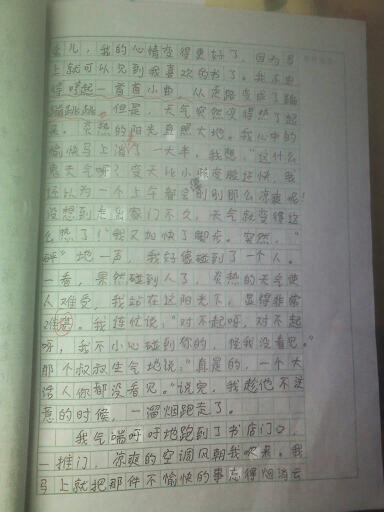 会儿，我的心情变得更好了，因为马
上就可以见到我喜欢的书了。我不由
得哼起一首首小曲，从走路变成了蹦
蹦跳跳。但是，天气突然变得热了起
来。炎热的阳光直照大地。我心中的
愉快马上消了一大半，我想，“这什么
鬼天气啊？变天比小孩变脸还快，我
还以为一个上午都会刚刚那么凉爽呢！
没想到走出家门不久，天气就变得这
么热了！”我又加快了脚步。突然，“
砰”地一声，我好像碰到了一个人。
一看，果然碰到人了，炎热的天气使
人难受，我站在这阳光下，显得非常
难。我连忙说：“对不起呀，对不起
呀，我不小心碰到你的，怪我没看见。”
那个叔叔生气地说：“真是的，一个大
活人你都没看见。”说完，我趁他不注
意的时候，一溜烟跑走了。
我气喘呼呼地跑到了书店门口，
一推门，凉爽的空调风朝我吹来。我
马上就把那件不愉快的事忘得烟消云